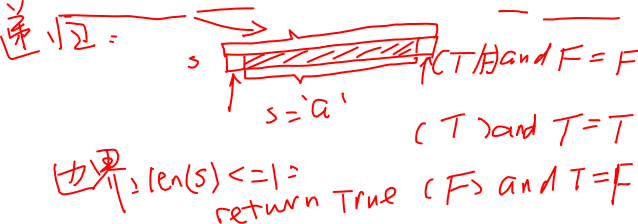 递归:
s
(T/F) and F = F
s='a'
(T) and T = T
边界: len(s) <= 1:
return True
(F) and T = F